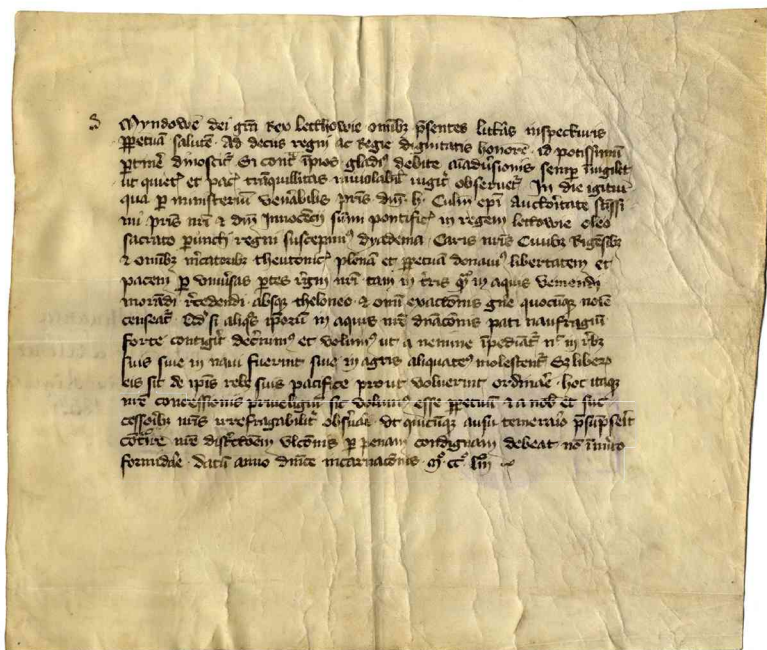 Myndowe dei grã Rex lettowie omĩbȝ p̃sentes litt̃as inspecturis
ꝑpetuã salutẽ. Ad decus regni ac Regie dignitatis honorẽ. id potissimũ
ꝑtinẽ dinoscit᷑ Si cont᷑ ĩpios gladiꝰ debite aĩaduersionis semꝑ ĩuigilet
ut quiet᷑ et pac᷑ tranquillitas inuiolabilit᷑ obseruet᷑. In die igitur
qua ꝑ ministeriũ ven̾abilis pr̃is dñi h. Culm̃ epĩ Auctoritate sc̃issi
mi pr̃is nr̃i ⁊ dñi Innocẽcij sũmi pontificꝭ in regem lettowie oleo
sacrato ꝑuncti regni suscepimꝰ dyadema. Caris nr̃is Ciuibȝ Rigẽsibȝ
⁊ omĩbȝ m̾catoribȝ theutonicꝭ plenã et ꝑpetuã donauimꝰ libertatem et
pacem ꝑ vniu̾sas ꝑtes regni nr̃i tam in t̾ris qᷓ in aquis veniendi
morandi recedendi absqȝ theloneo ⁊ omĩ exactõnis gñe quocũqȝ noĩe
censeat᷑. Et si aliqˢ ip̃orũ in aquis nr̃e dñacõnis pati naufragiũ
forte contigit decreuimꝰ et volumꝰ ut a nemine ĩpediãt᷑ nᶜ in rebȝ
suis siue in naui fuerint siue in agris aliquatenꝰ molestent᷑ Sȝ liberũ
eis sit de ip̃is rebȝ suis pacifice prout voluerint ordinãe. hoc itaqȝ
nr̃e concessionis priuilegiũ sic volumꝰ esse ꝑpetuũ ⁊ a nobꝭ et suc
cessoribȝ nr̃is irrefragabilit᷑ obs̾uari. Vt quicũqȝ ausu temerario p̃sũpserit
cõt̾ire nr̃e districtõem vlcõnis ꝑ penam condignam debeat nõ ĩm̾ito
formidãe. datũ anno dñice incarnacõnis. Mᵒ. CCᵒ. Liij